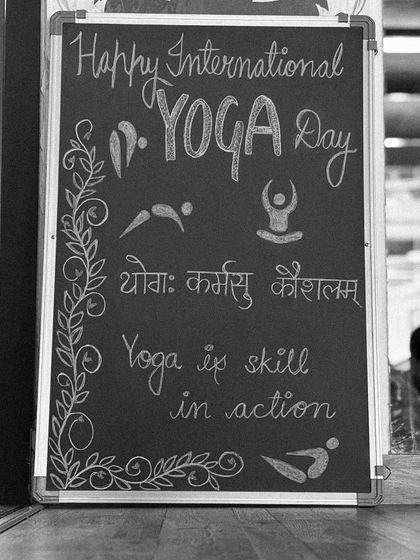 Happy International
YOGA Day
योगः कर्मसु कौशलम्
Yoga is skill
in action